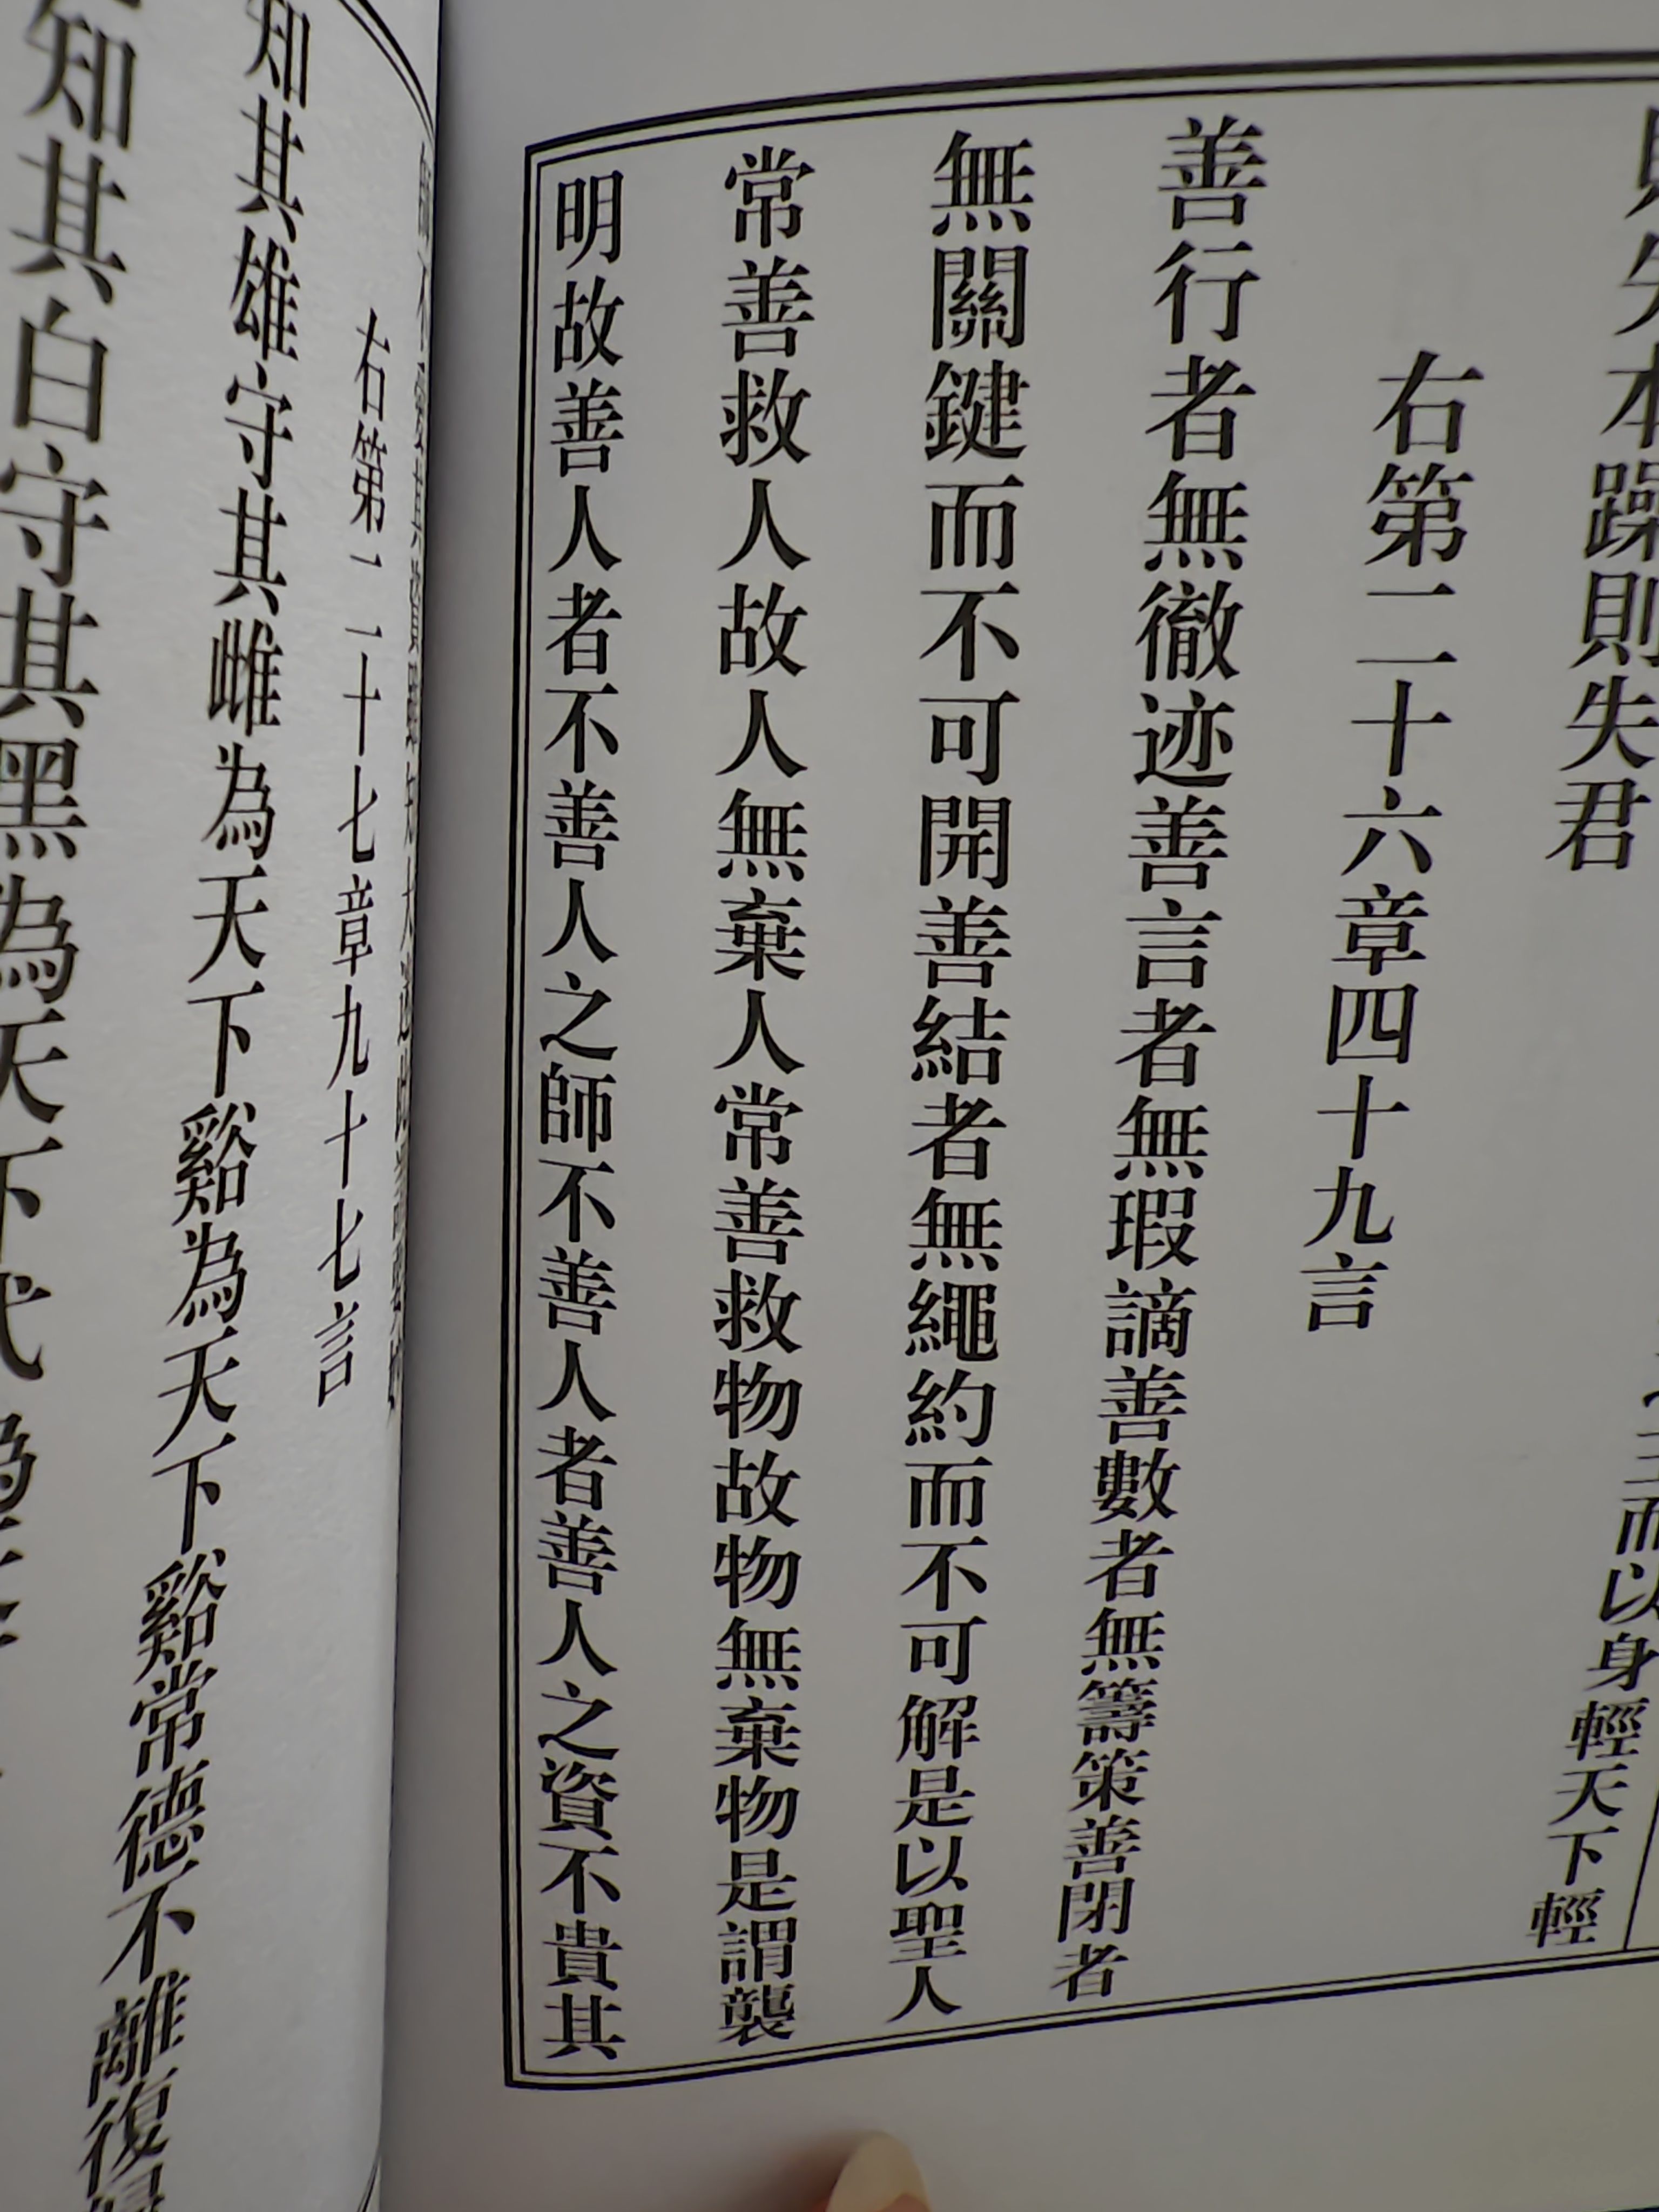 王而以身輕天下輕
本躁則失君
右第二十六章四十九言
善行者無徹迹善言者無瑕讁善數者無籌策善閉者
無關鍵而不可開善結者無繩約而不可解是以聖人
常善救人故人無棄人常善救物故物無棄物是謂襲
明故善人者不善人之師不善人者善人之資不貴其
右第二十七章九十七言
知其雄守其雌為天下谿為天下谿常德不離復
知其白守其黑為天下式